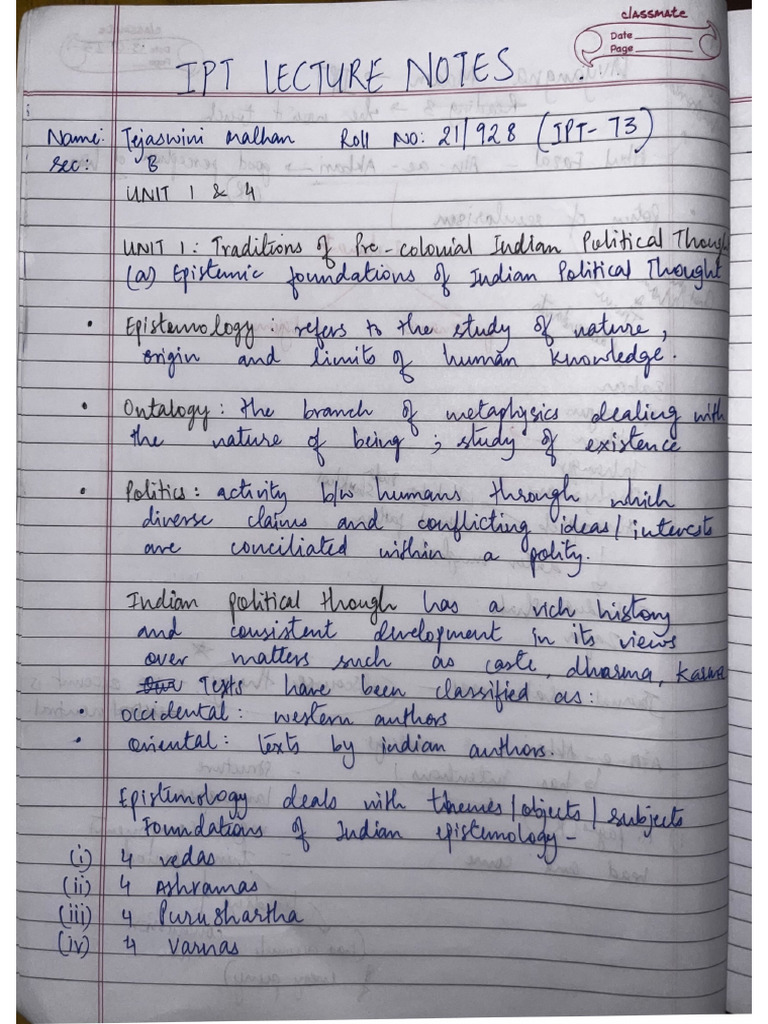 classmate
Date
Page
IPT LECTURE NOTES
Name: Tejaswini Malhan Roll No: 21/928 (IPT-73)
Sec: B
UNIT 1 & 4
UNIT 1: Traditions of Pre-colonial Indian Political Though
(a) Epistemic foundations of Indian Political Thought
• Epistemology: refers to the study of nature,
origin and limits of human knowledge.
• Ontalogy: the branch of metaphysics dealing with
the nature of being; study of existence
• Politics: activity b/w humans through which
diverse claims and conflicting ideas/interests
are conciliated within a polity.
Indian political though has a rich history
and consistent development in its views
over matters such as caste, dharma, karma
Texts have been classified as:
• Occidental: western authors
• Oriental: texts by indian authors.
Epistemology deals with themes/objects/subjects
Foundations of Indian epistemology-
(i) 4 vedas
(ii) 4 Ashramas
(iii) 4 Purushartha
(iv) 4 Varnas